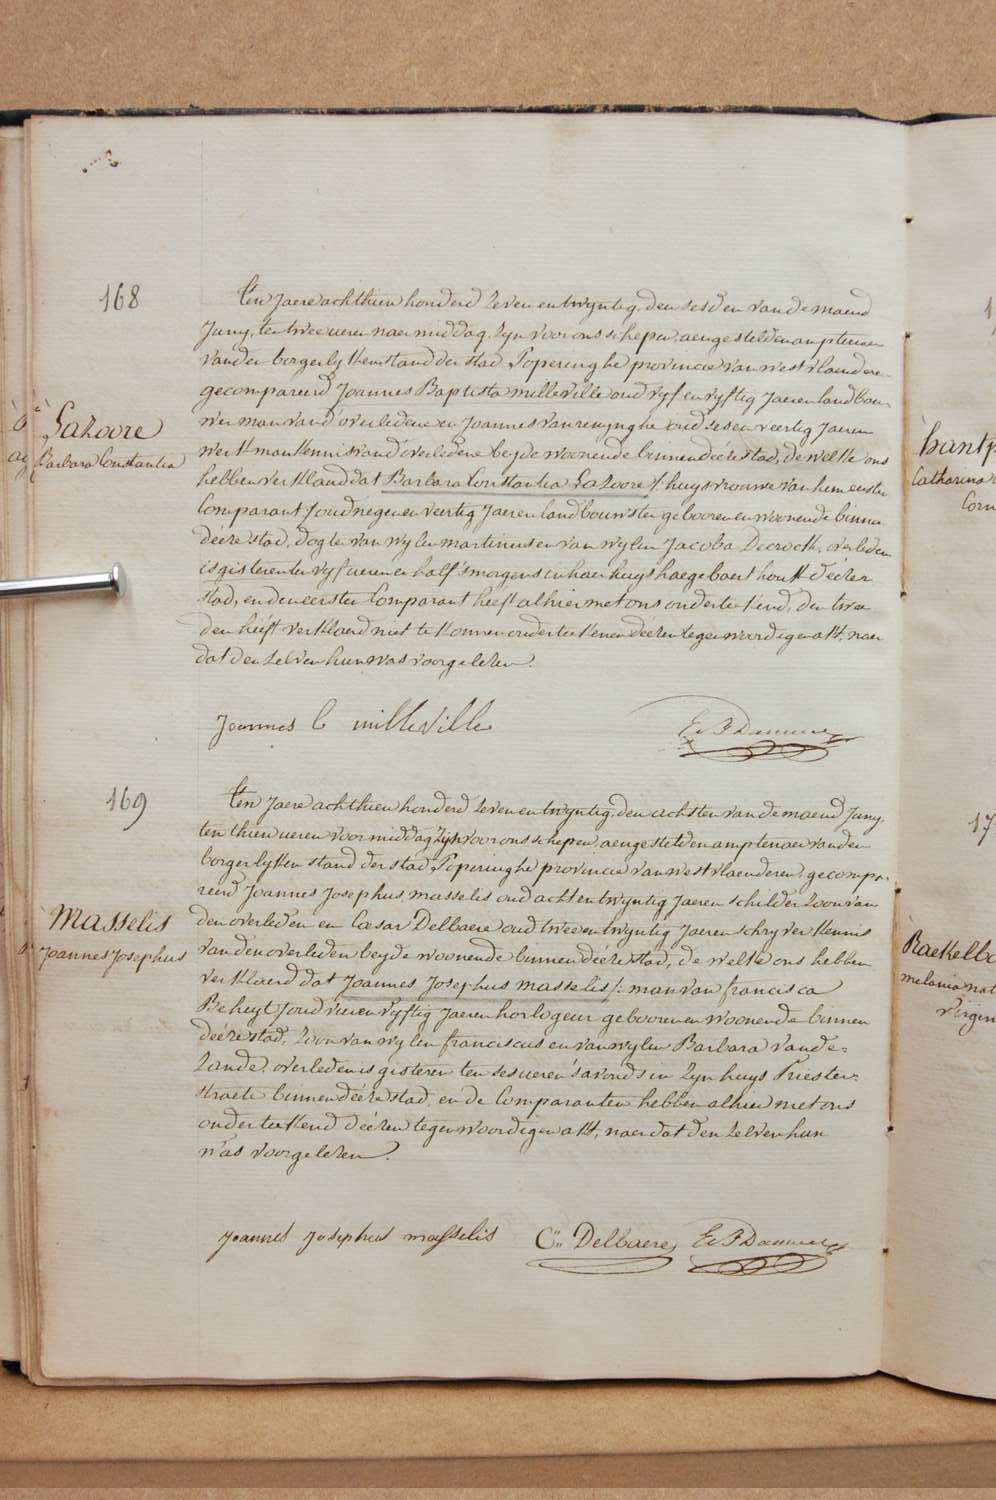 168
Lazoore
Barbara Constantia
Ten Jaere achthien honderd zeven en twyntig, den sesden van de maend
Juny, ten twee ueren naer middag, zyn voor ons schepen, aengestelden amptenaer
van den borgerlyken stand der stad Poperinghe provincie van westvlaenderen
gecompareerd Joannes Baptista milleville oud vyf en vyftig Jaeren landbou-
wer man vand'overledene en Joannes vanrenynghe oud ses en veertig Jaeren
werkman kennis vand'overledene beyde woonende binnen déeze stad, de welke ons
hebben verklaerd dat Barbara Constantia Lazoore /: huysvrouwe van hem eersten
Comparant / oud negen en veertig Jaeren landbouwster gebooren en woonende binnen
déeze stad, dogter van wylen martinus en van wylen Jacoba Decrock, overleden
is gisteren ten vyf ueren en half s'morgens in haer huys haegebaert houk déezer
stad, en den eersten Comparant heeft alhier met ons onderteekend, den twee
den heeft verklaerd niet te konnen onderteekenen déezen tegenwoordigen akt, naer
dat den zelven hun was voorgelezen.
Joannes b milleville
169
Masselis
Joannes Josephus
Ten Jaere achthien honderd zeven en twyntig, den achsten van de maend Juny,
ten thien ueren voormiddag zyn voor ons schepen, aengestelden amptenaer van den
borgerlyken stand der stad Poperinghe provincie van westvlaenderen, gecompa-
reerd Joannes Josephus masselis oud acht en twyntig Jaeren schilder zoon van
den overleden en Cæsar Delbaere oud twee en twyntig Jaeren schryver kennis
van den overleden beyde woonende binnen déeze stad, de welke ons hebben
verklaerd dat Joannes Josephus masselis /: man van francisca
Beheyt / oud vier en vyftig Jaeren horlogeur gebooren en woonende binnen
déeze stad, zoon van wylen franciscus en van wylen Barbara vande-
zande, overleden is gisteren ten ses ueren s'avonds in zyn huys Priester-
straete binnen déeze stad, en de Comparanten hebben alhier met ons
onderteekend déezen tegenwoordigen akt, naer dat den zelven hun
was voorgelezen.
Joannes Josephus masselis C. Delbaere
Catharina
Corn
17
melania nat
Virgin